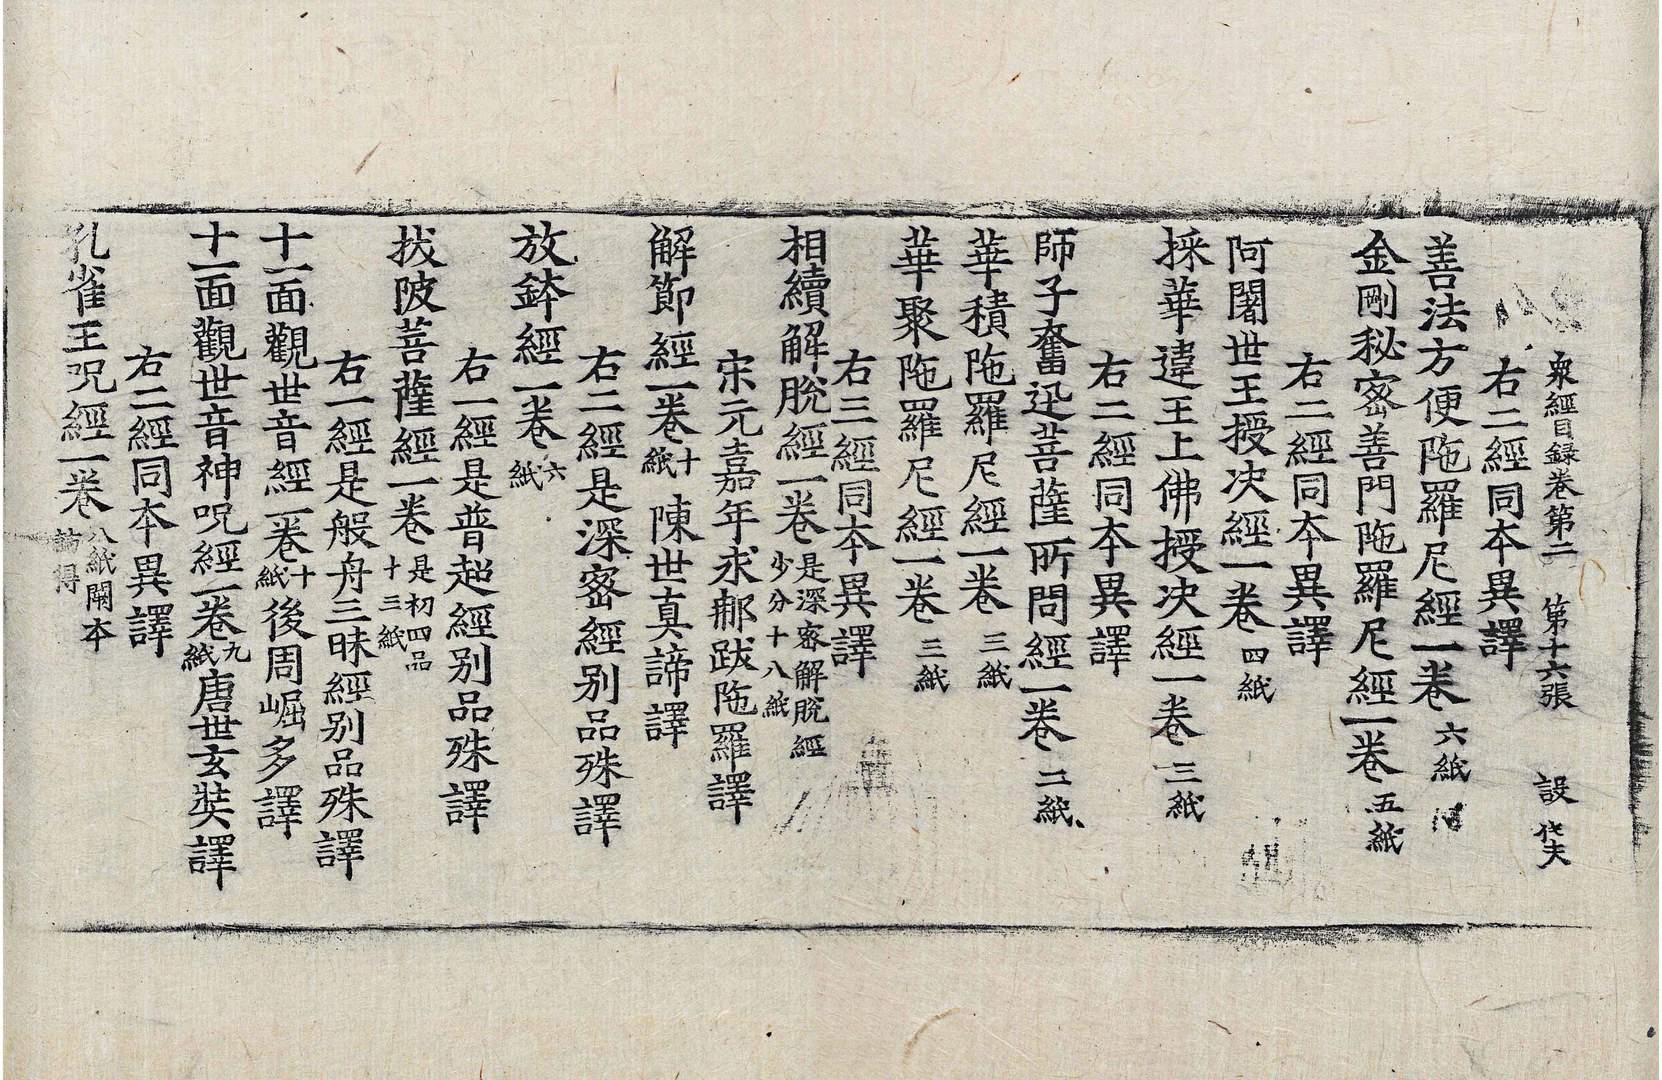 衆經目録卷第二 第十六張 設 㒲夫
右二經同本異譯
善法方便陁羅尼經一卷 六紙
金剛秘密善門陁羅尼經一卷 五紙
右二經同本異譯
阿闍世王授决經一卷 四紙
採華違王上佛授决經一卷 三紙
右二經同本異譯
師子奮迅菩薩所問經一卷 二紙
華積陁羅尼經一卷 三紙
華聚陁羅尼經一卷 三紙
右三經同本異譯
相續解脫經一卷 是深密解脫經少分十八紙
宋元嘉年求那跋陁羅譯
解節經一卷 十紙 陳世真諦譯
右二經是深密經别品殊譯
放鉢經一卷 六紙
右一經是普超經别品殊譯
拔陂菩薩經一卷 是初四品十三紙
右一經是般舟三昧經别品殊譯
十一面觀世音經一卷 十紙 後周崛多譯
十一面觀世音神呪經一卷 九紙 唐世玄奘譯
右二經同本異譯
孔雀王呪經一卷 八紙闕本訪得